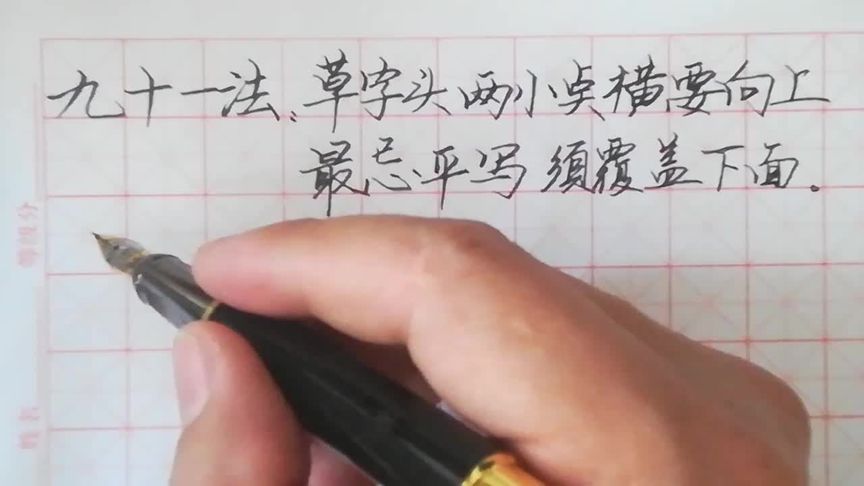 九十一法、草字头两小点横要向上
最忌平写 须覆盖下面.
等级分
姓名